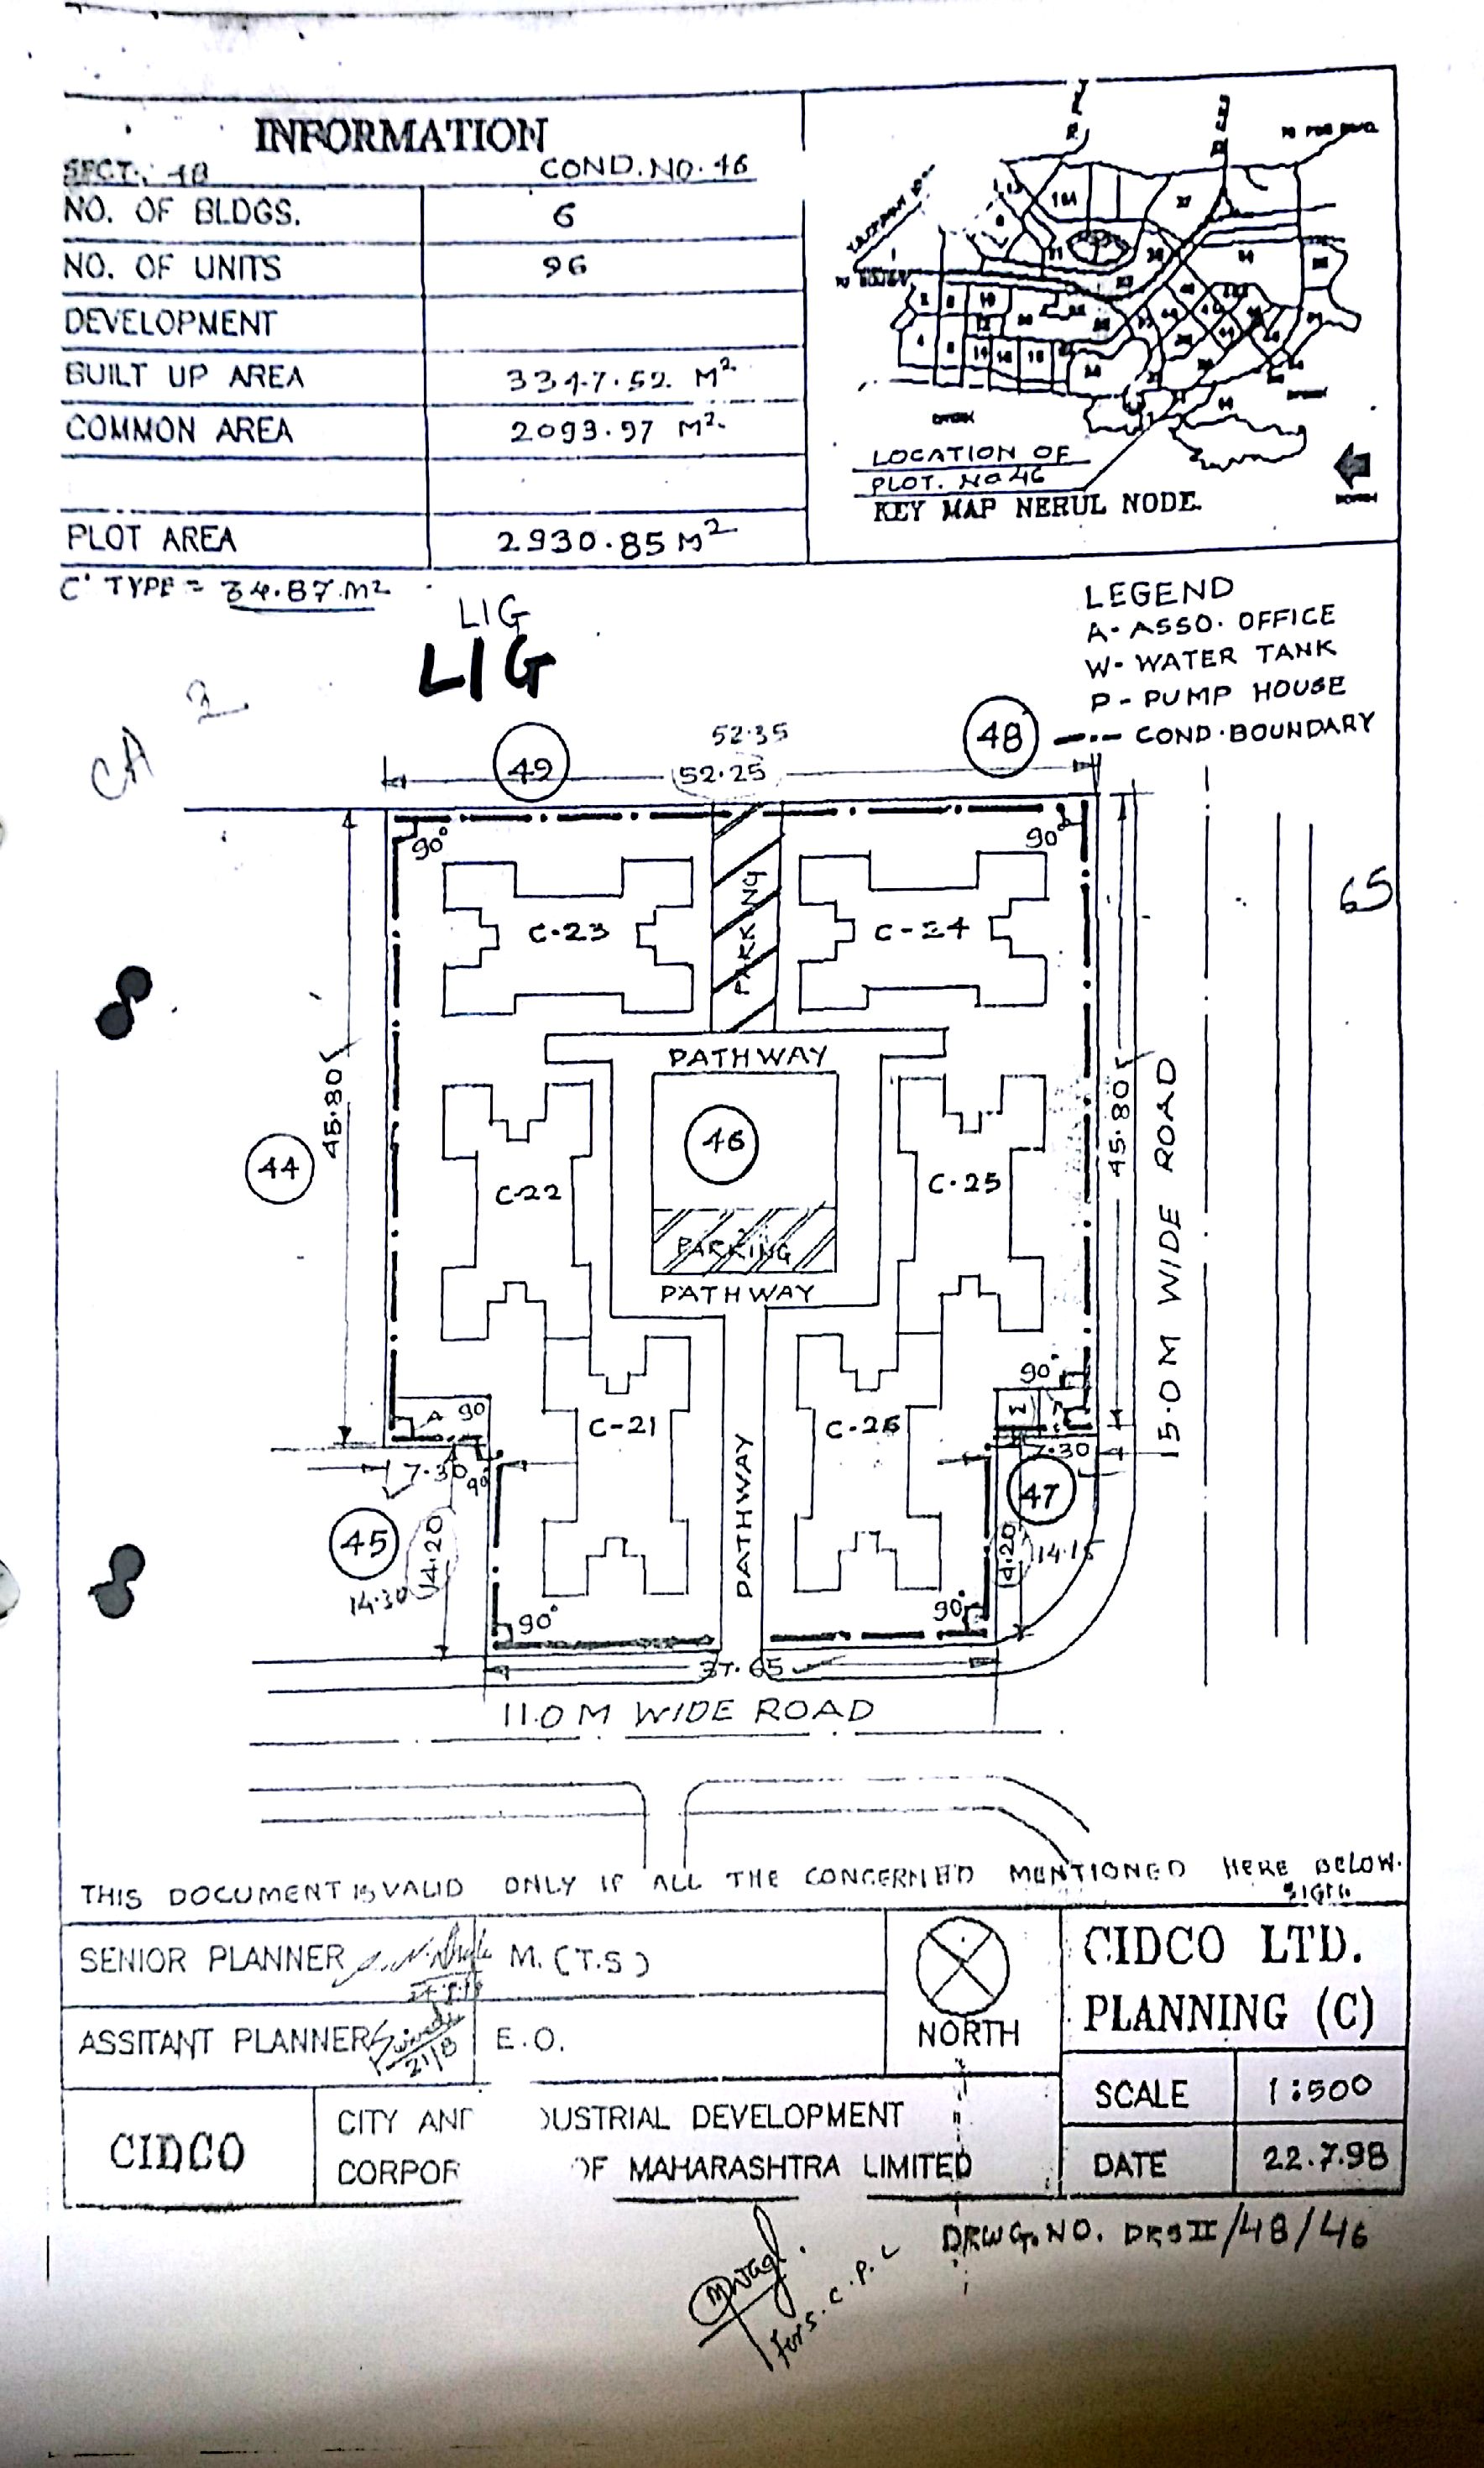 INFORMATION
SECT. 48 COND. NO. 46
NO. OF BLDGS. 6
NO. OF UNITS 96
DEVELOPMENT
BUILT UP AREA 3347.52 M²
COMMON AREA 2093.97 M²
PLOT AREA 2930.85 M²
C' TYPE = 34.87 M²
LOCATION OF
PLOT. NO 46
KEY MAP NERUL NODE.
NORTH
LIG
LIG
LEGEND
A- ASSO. OFFICE
W- WATER TANK
P- PUMP HOUSE
COND. BOUNDARY
CA 2
52.35
49 52.25 48
90° 90°
C-23 PARKING C-24
65
PATHWAY
45.80 45.80
44 46
C-22 C-25
PARKING
PATHWAY
15.0 M WIDE ROAD
90°
A 90
C-21 C-26
7.30 7.30
90°
PATHWAY
45 47
14.20 14.20 14.15
14.30
90° 90°
37.65
11.0 M WIDE ROAD
THIS DOCUMENT IS VALID ONLY IF ALL THE CONCERNED MENTIONED HERE BELOW.
SIGN.
SENIOR PLANNER M. (T.S)
ASSITANT PLANNER 21/8 E.O.
NORTH
CIDCO LTD.
PLANNING (C)
SCALE 1:500
DATE 22.7.98
CIDCO
CITY AND DUSTRIAL DEVELOPMENT
CORPOR OF MAHARASHTRA LIMITED
DRWG. NO. DRSII/48/46
For S.C.P.L